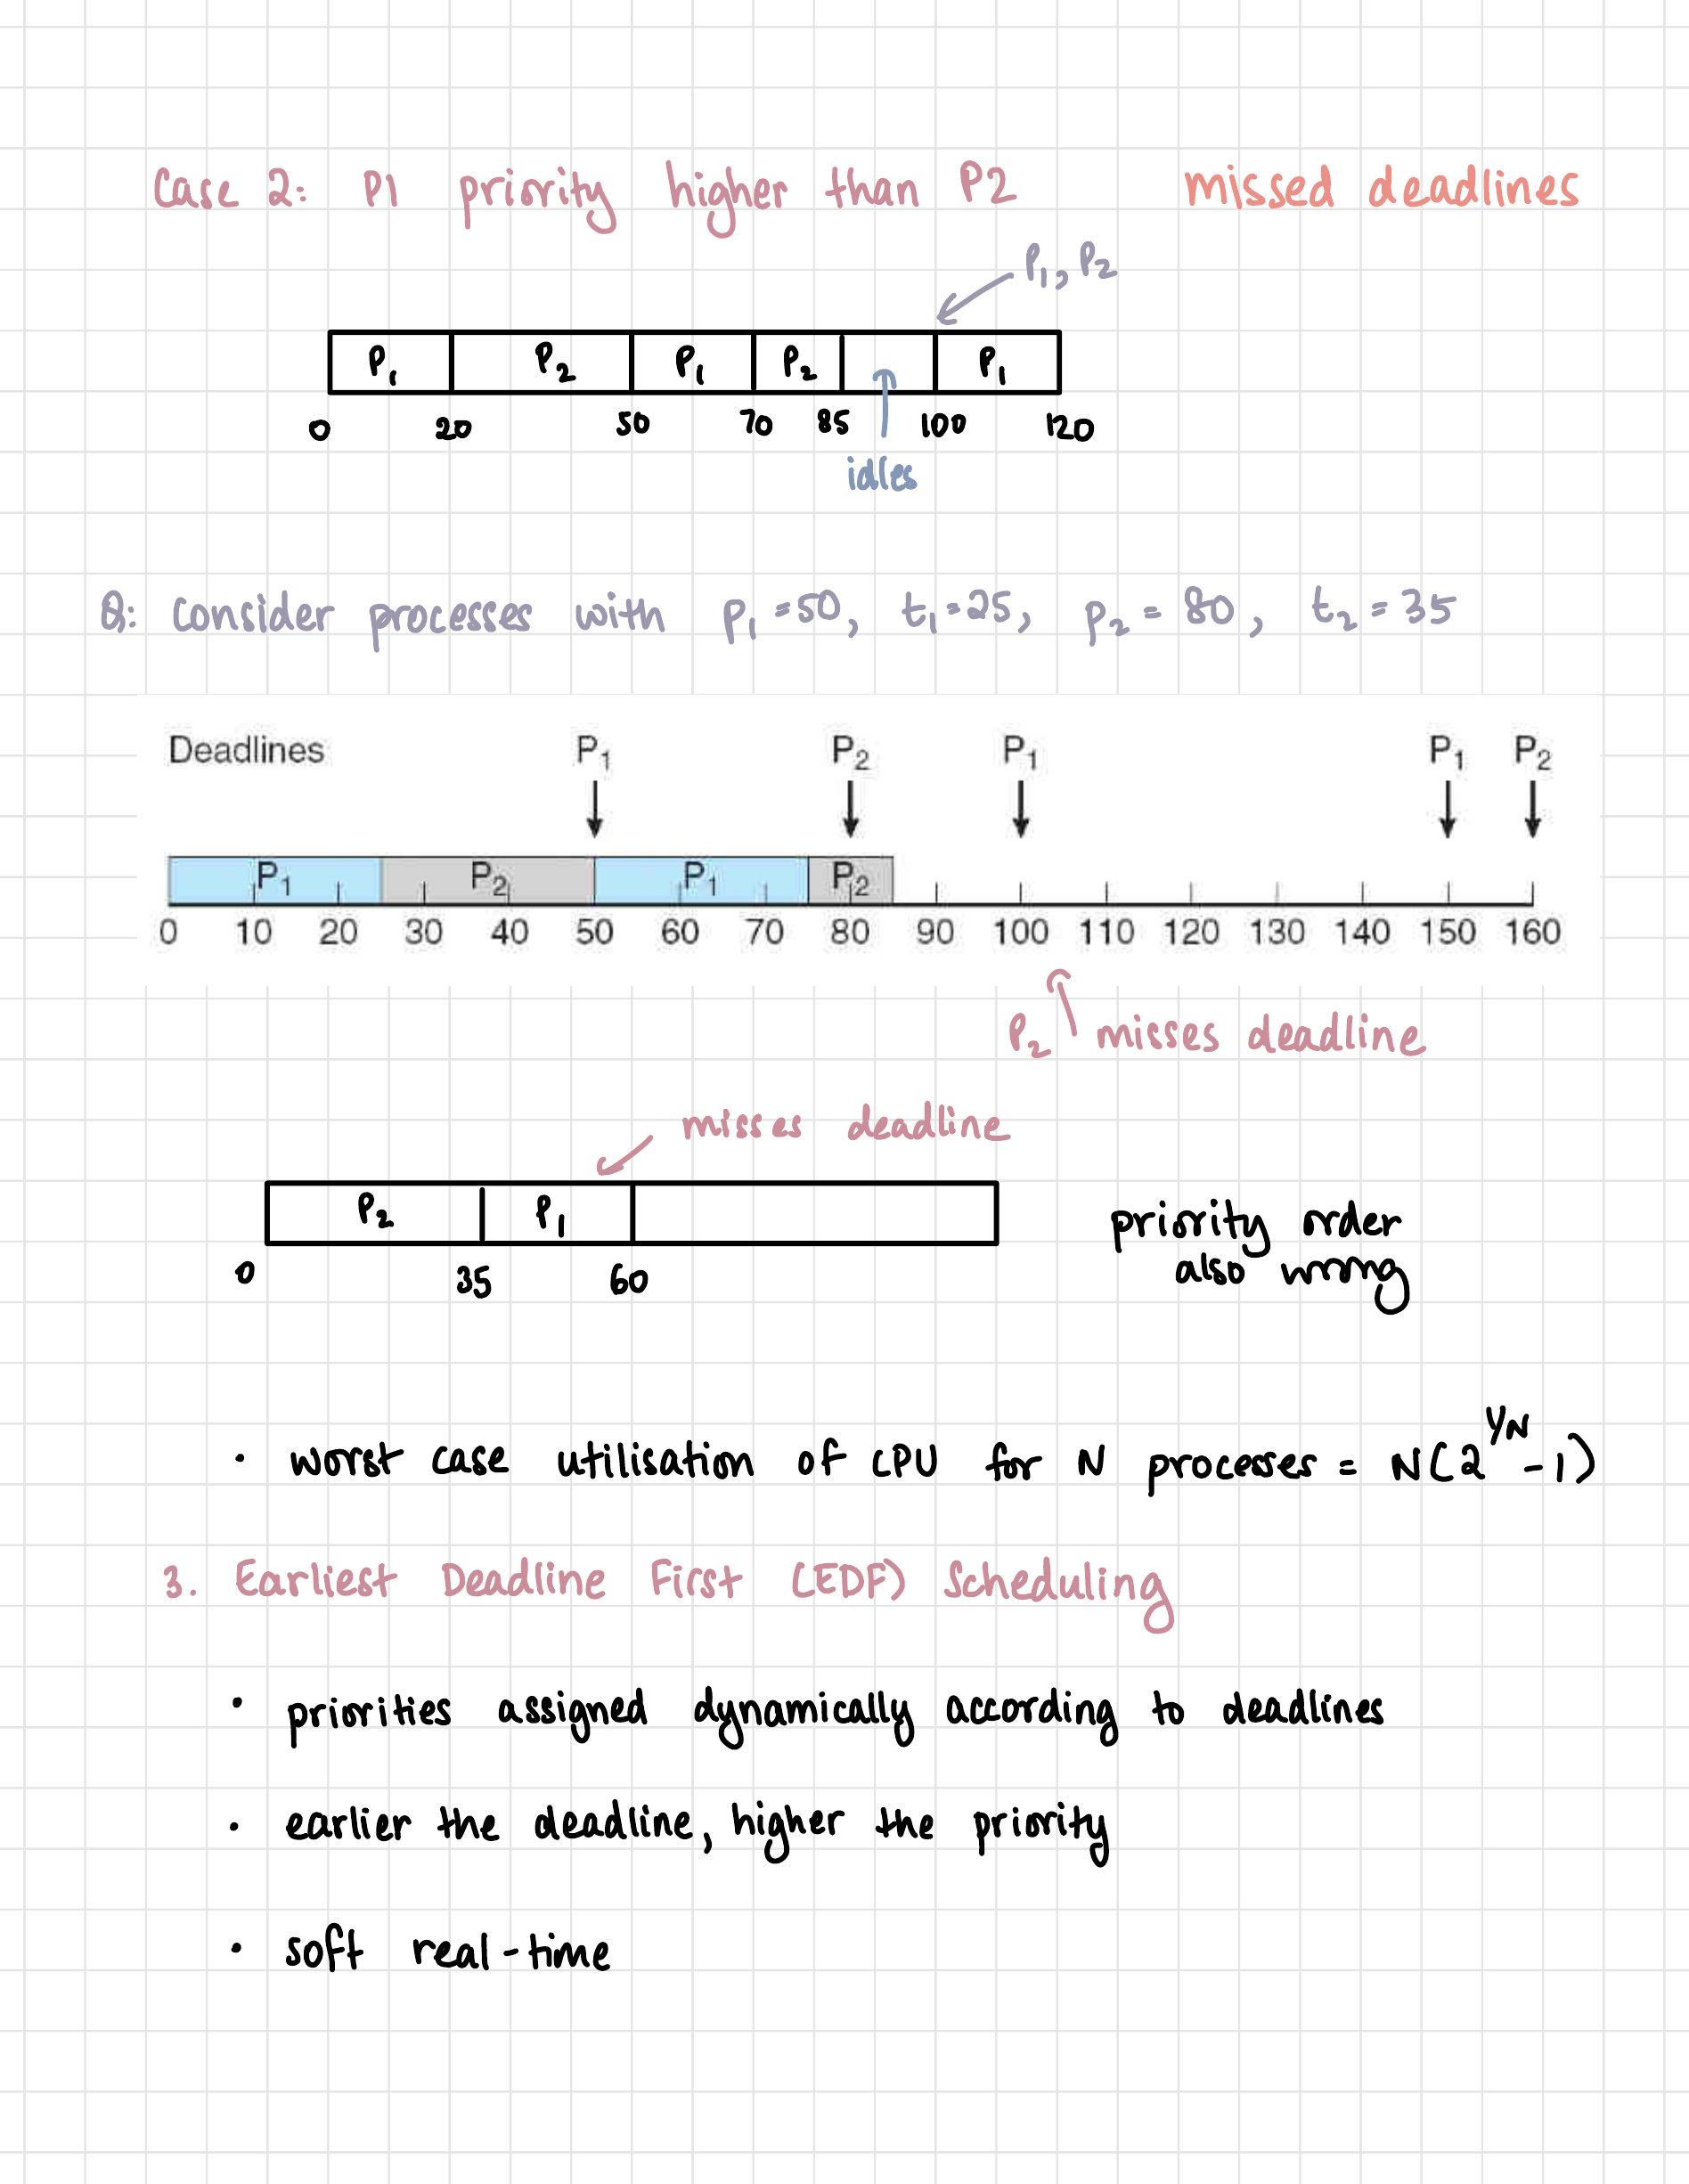 Case 2: P1 priority higher than P2 missed deadlines
P₁, P₂
P₁ P₂ P₁ P₂ P₁
0 20 50 70 85 100 120
idles
Q: Consider processes with p₁ = 50, t₁ = 25, p₂ = 80, t₂ = 35
Deadlines P₁ P₂ P₁ P₁ P₂
P₁ P₂ P₁ P₂
0 10 20 30 40 50 60 70 80 90 100 110 120 130 140 150 160
P₂ misses deadline
misses deadline
P₂ P₁
0 35 60
priority order
also wrong
• worst case utilisation of CPU for N processes = N(2^{1/N} - 1)
3. Earliest Deadline First (EDF) Scheduling
• priorities assigned dynamically according to deadlines
• earlier the deadline, higher the priority
• soft real-time